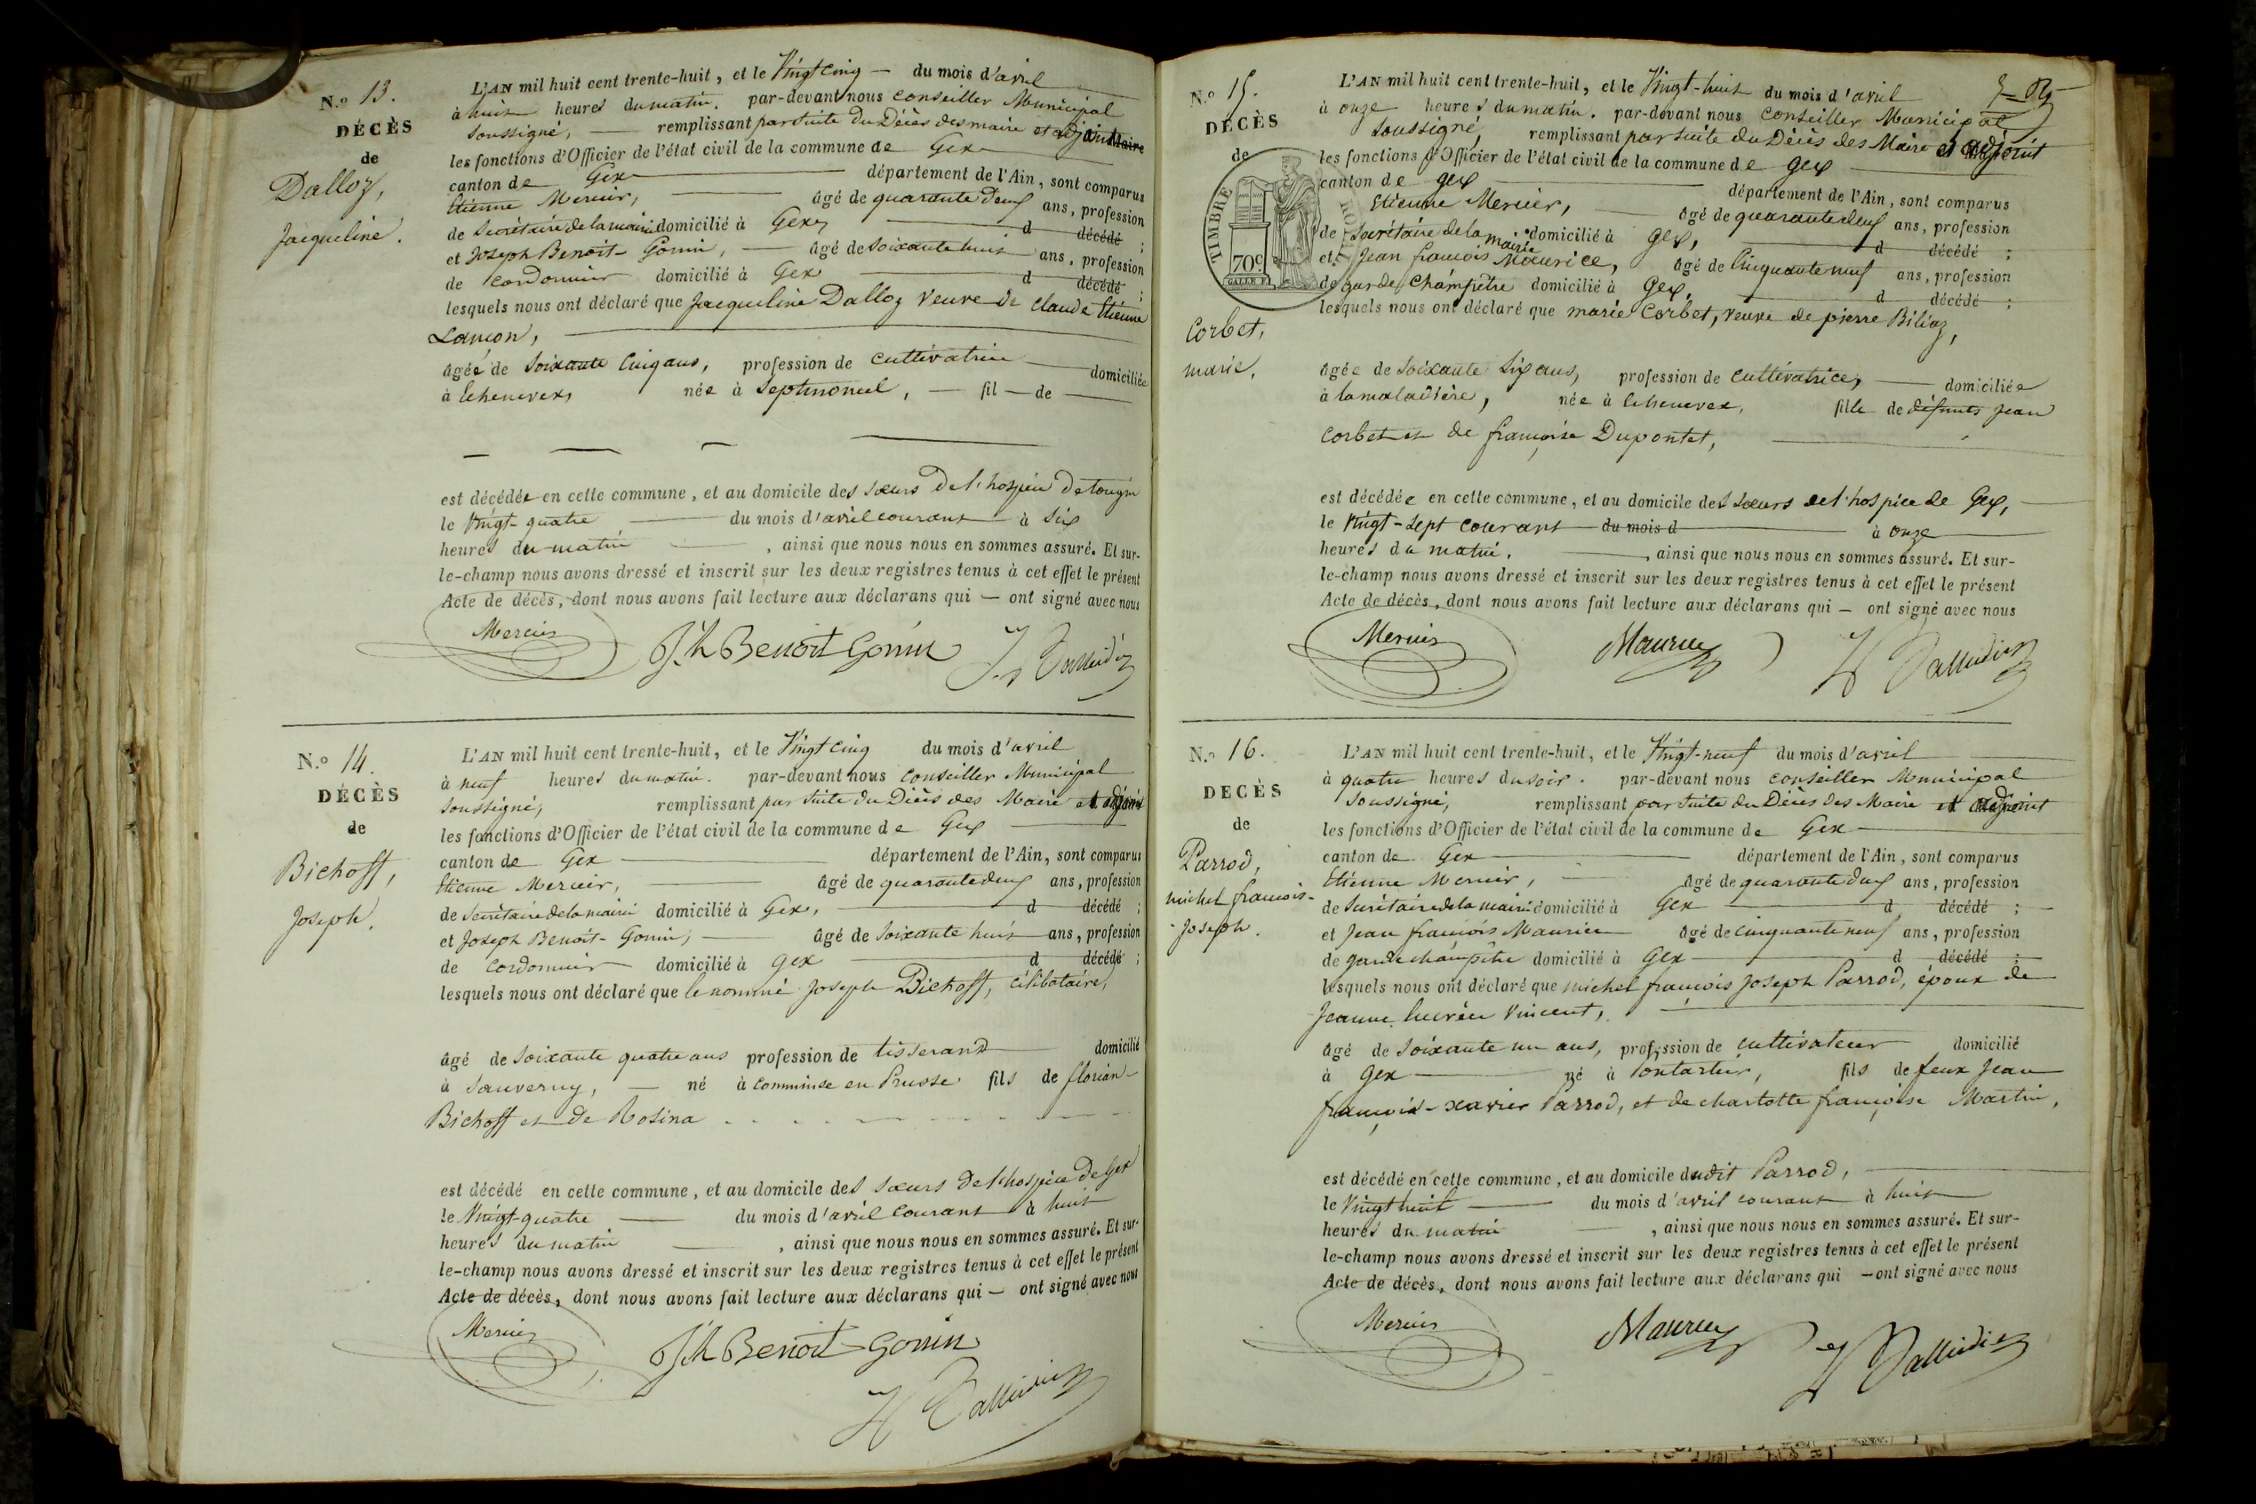 N.º 13.
DÉCÈS
de
Dalloz,
Jacqueline.
L'AN mil huit cent trente-huit, et le Vingt cinq — du mois d'avril
à huit heures du matin. par-devant nous conseiller Municipal
soussigné, — remplissant par suite du Décès des maire et adjoint
les fonctions d'Officier de l'état civil de la commune de Gex
canton de Gex département de l'Ain, sont comparus
Etienne Mercier, âgé de quarante deux ans, profession
de secrétaire de la mairie domicilié à Gex, d décédé ;
et Joseph Benoit Gonin, âgé de soixante huit ans, profession
de cordonnier domicilié à Gex d décédé ;
lesquels nous ont déclaré que Jacqueline Dalloz veuve de Claude Etienne
Lançon,
âgée de soixante cinq ans, profession de cultivatrice domiciliée
à Echenevex, née à Septmoncel, — fil — de —
est décédée en cette commune, et au domicile des sœurs de l'hospice de tougin
le vingt-quatre du mois d'avril courant à six
heures du matin , ainsi que nous nous en sommes assuré. Et sur-
le-champ nous avons dressé et inscrit sur les deux registres tenus à cet effet le présent
Acte de décès, dont nous avons fait lecture aux déclarans qui — ont signé avec nous
Mercier Jh Benoit Gonin
N.º 14.
DÉCÈS
de
Bichoff,
Joseph.
L'AN mil huit cent trente-huit, et le Vingt cinq du mois d'avril
à neuf heures du matin. par-devant nous conseiller Municipal
soussigné, remplissant par suite du Décès des Maire et adjoint
les fonctions d'Officier de l'état civil de la commune de Gex
canton de Gex département de l'Ain, sont comparus
Etienne Mercier, âgé de quarante deux ans, profession
de secrétaire de la mairie domicilié à Gex, d décédé ;
et Joseph Benoit-Gonin, âgé de soixante huit ans, profession
de cordonnier domicilié à Gex d décédé ;
lesquels nous ont déclaré que le nommé Joseph Bichoff, célibataire,
âgé de soixante quatre ans profession de tisserand domicilié
à Sauverny, — né à en Prusse fils de florian
Bichoff et de Rosina
est décédé en cette commune, et au domicile des sœurs de l'hospice de Gex
le Vingt-quatre du mois d'avril courant à huit
heures du matin , ainsi que nous nous en sommes assuré. Et sur-
le-champ nous avons dressé et inscrit sur les deux registres tenus à cet effet le présent
Acte de décès, dont nous avons fait lecture aux déclarans qui — ont signé avec nous
Mercier Jh Benoit Gonin
N.º 15.
DÉCÈS
de
TIMBRE ROYAL
70c
Corbet,
marie.
L'AN mil huit cent trente-huit, et le Vingt-huit du mois d'avril
à onze heures du matin. par-devant nous conseiller Municipal
soussigné, remplissant par suite du Décès des Maire et adjoint
les fonctions d'Officier de l'état civil de la commune de Gex
canton de Gex département de l'Ain, sont comparus
Etienne Mercier, âgé de quarante deux ans, profession
de secrétaire de la mairie domicilié à Gex, d décédé ;
et Jean françois Maurice, âgé de Cinquante neuf ans, profession
de garde champêtre domicilié à Gex, d décédé ;
lesquels nous ont déclaré que marie Corbet, veuve de pierre Biliaz,
âgée de soixante six ans, profession de cultivatrice, domiciliée
à la maladière, née à Echenevex, fille de défunts Jean
Corbet et de françoise Dupontet,
est décédée en cette commune, et au domicile des sœurs de l'hospice de Gex,
le Vingt-sept courant du mois d à onze
heures du matin. , ainsi que nous nous en sommes assuré. Et sur-
le-champ nous avons dressé et inscrit sur les deux registres tenus à cet effet le présent
Acte de décès, dont nous avons fait lecture aux déclarans qui — ont signé avec nous
Mercier Maurice
N.º 16.
DÉCÈS
de
Parrod,
michel françois-
Joseph.
L'AN mil huit cent trente-huit, et le Vingt-neuf du mois d'avril
à quatre heures du soir. par-devant nous conseiller Municipal
soussigné, remplissant par suite du Décès des Maire et adjoint
les fonctions d'Officier de l'état civil de la commune de Gex
canton de Gex département de l'Ain, sont comparus
Etienne Mercier, âgé de quarante deux ans, profession
de secrétaire de la mairie domicilié à Gex d décédé ;
et Jean françois Maurice âgé de cinquante neuf ans, profession
de garde champêtre domicilié à Gex d décédé ;
lesquels nous ont déclaré que michel françois Joseph Parrod, époux de
Jeanne Lucrèce Vincent,
âgé de soixante un ans, profession de cultivateur domicilié
à Gex né à Pontarlier, fils de feux Jean
françois-xavier Parrod, et de charlotte françoise Martin,
est décédé en cette commune, et au domicile dudit Parrod,
le Vingt huit du mois d'avril courant à huit
heures du matin , ainsi que nous nous en sommes assuré. Et sur-
le-champ nous avons dressé et inscrit sur les deux registres tenus à cet effet le présent
Acte de décès, dont nous avons fait lecture aux déclarans qui — ont signé avec nous
Mercier Maurice